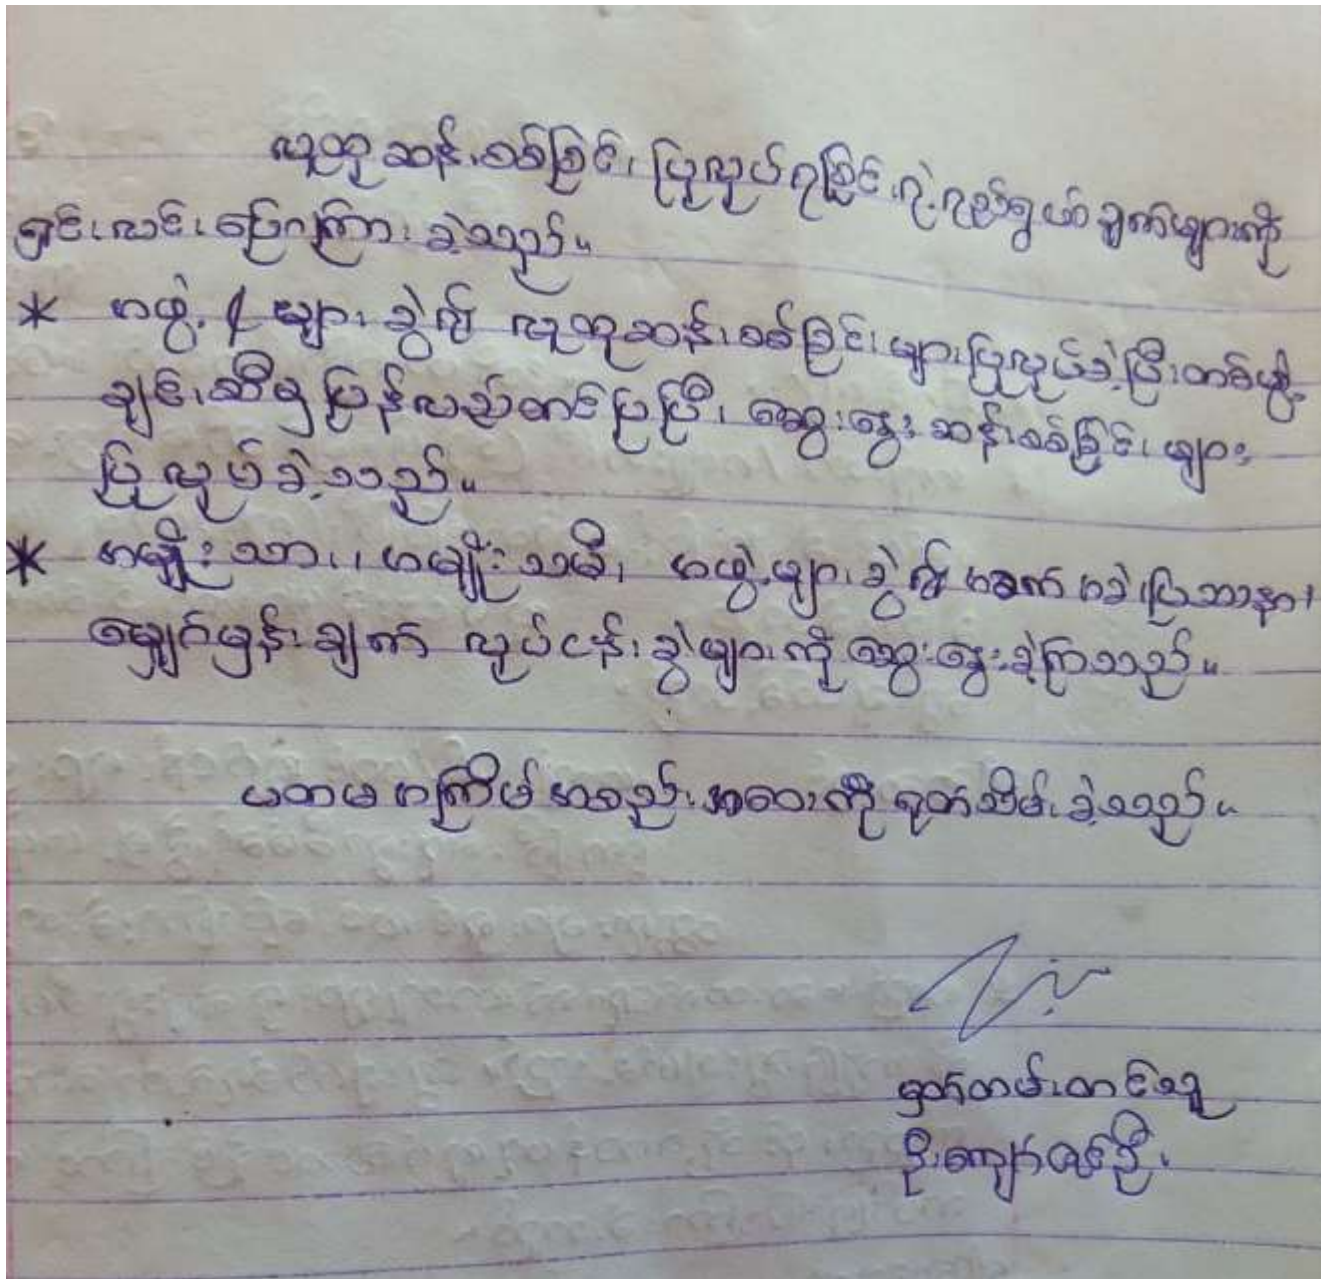 လူထုဆန်းစစ်ခြင်း ပြုလုပ်ရခြင်းရဲ့ ရည်ရွယ်ချက်များကို
ရှင်းလင်းပြောကြားခဲ့သည်။
* အဖွဲ့ ၄ များခွဲ၍ လူထုဆန်းစစ်ခြင်းများပြုလုပ်ခဲ့ပြီး တစ်ဖွဲ့
ချင်းဆီမှ ပြန်လည်တင်ပြပြီး ဆွေးနွေးဆန်းစစ်ခြင်းများ
ပြုလုပ်ခဲ့သည်။
* အမျိုးသား၊ အမျိုးသမီး အဖွဲ့များခွဲ၍ အခက်အခဲ ပြဿနာ၊
မျှော်မှန်းချက် လုပ်ငန်းခွဲများကို ဆွေးနွေးခဲ့ကြသည်။
ပထမအကြိမ် အစည်းအဝေးကို ရုတ်သိမ်းခဲ့သည်။
မှတ်တမ်းတင်သူ
ဦးကျော်ဇင်ဦး